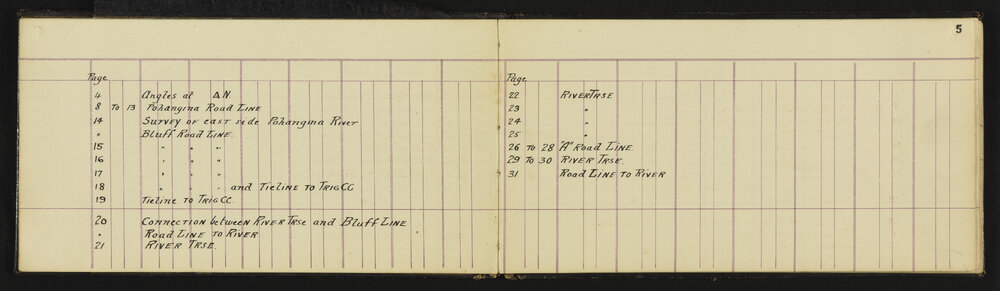 5
Page
4 Angles at △N.
8 To 13 Pohangina Road Line
14 Survey of east side Pohangina River
" Bluff Road Line.
15 " " "
16 " " "
17 " " "
18 " " " and Tieline to Trig CC
19 Tieline to Trig CC.
20 Connection between River Trse and Bluff Line.
" Road Line to River
21 River Trse.
Page
22 River Trse
23 "
24 "
25 "
26 to 28 "A" Road Line.
29 To 30 River Trse.
31 Road Line to River